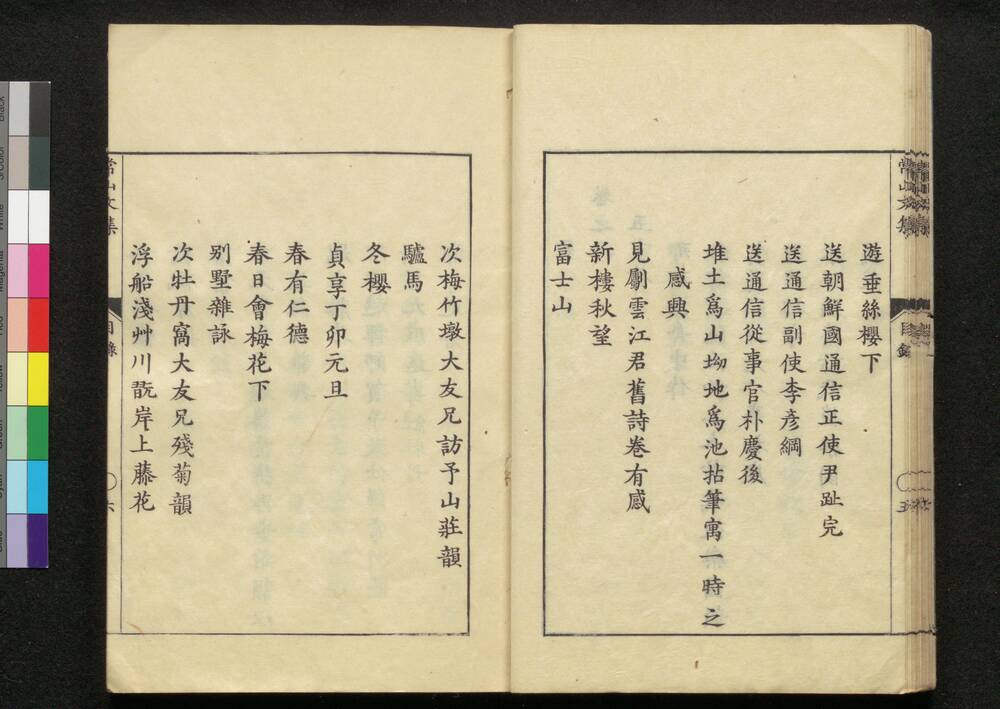 遊垂絲櫻下
送朝鮮國通信正使尹趾完
送通信副使李彥綱
送通信從事官朴慶後
堆土爲山坳地爲池拈筆寓一時之
感興
見劚雲江君舊詩卷有感
新樓秋望
富士山
常山文集
目錄
五
次梅竹墩大友兄訪予山莊韻
驢馬
冬櫻
貞享丁卯元旦
春有仁德
春日會梅花下
別墅雜詠
次牡丹窩大友兄殘菊韻
浮船淺艸川翫岸上藤花
常山文集
目錄
六